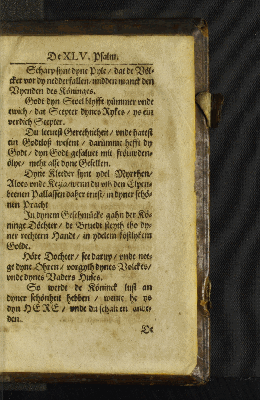 De XLV. Psalm.
Scharp synt dyne Pyle / dat de Völ-
cker vor dy nedderfallen / midden manck den
Vyenden des Köninges.
Godt dyn Stoel blyfft yümmer vnde
ewich / dat Scepter dynes Rykes / ys ein
Scepter.
Du leuest Gerechticheit / vnde hatest
ein Godtloß wesent / darümme hefft dy
Godt / dyn Godt gesaluet mit fröuwden-
ölye / mehr alse dyne Gesellen.
Dyne Kleider synt ydel Myrrhen /
Aloes vnde Kezia / wenn du vth den Elpen-
beenen Pallasten daher tritst / in dyner schö-
nen Pracht
In dynem Geschmücke gahn der Kö-
ninge Döchter / de Bruedt steyth tho dy-
ner rechtern Handt / in ydelem köstlykem
Golde.
Höre Dochter / see darup / vnde nei-
ge dyne Ohren / vorgyth dynes Volckes /
vnde dynes Vaders Huses.
So werdt de Köninck lust an
dyner schönheit hebben / wente he ys
dyn HERE / vnde du schalt en anbe-
den.
De